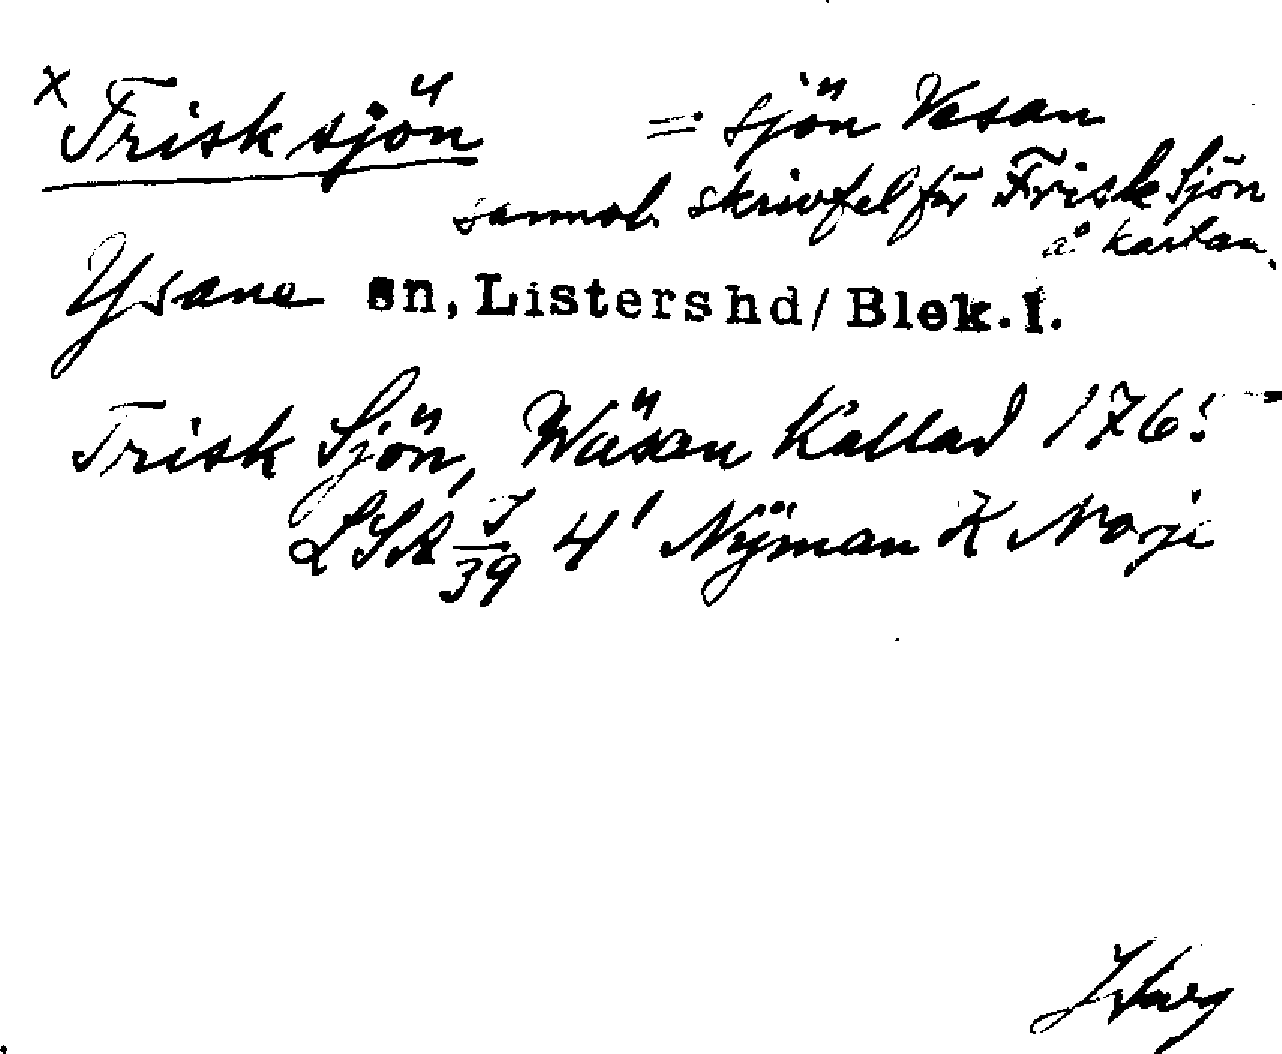 x Trisksjön = sjön Vesan
sannol. skrivfel för Frisk Sjön
å kartan.
Ysane sn, Listershd/ Blek.l.
Trisk Sjön, Wäsen Kallad 1765
LSA I/39 4¹ Nÿman K Norje